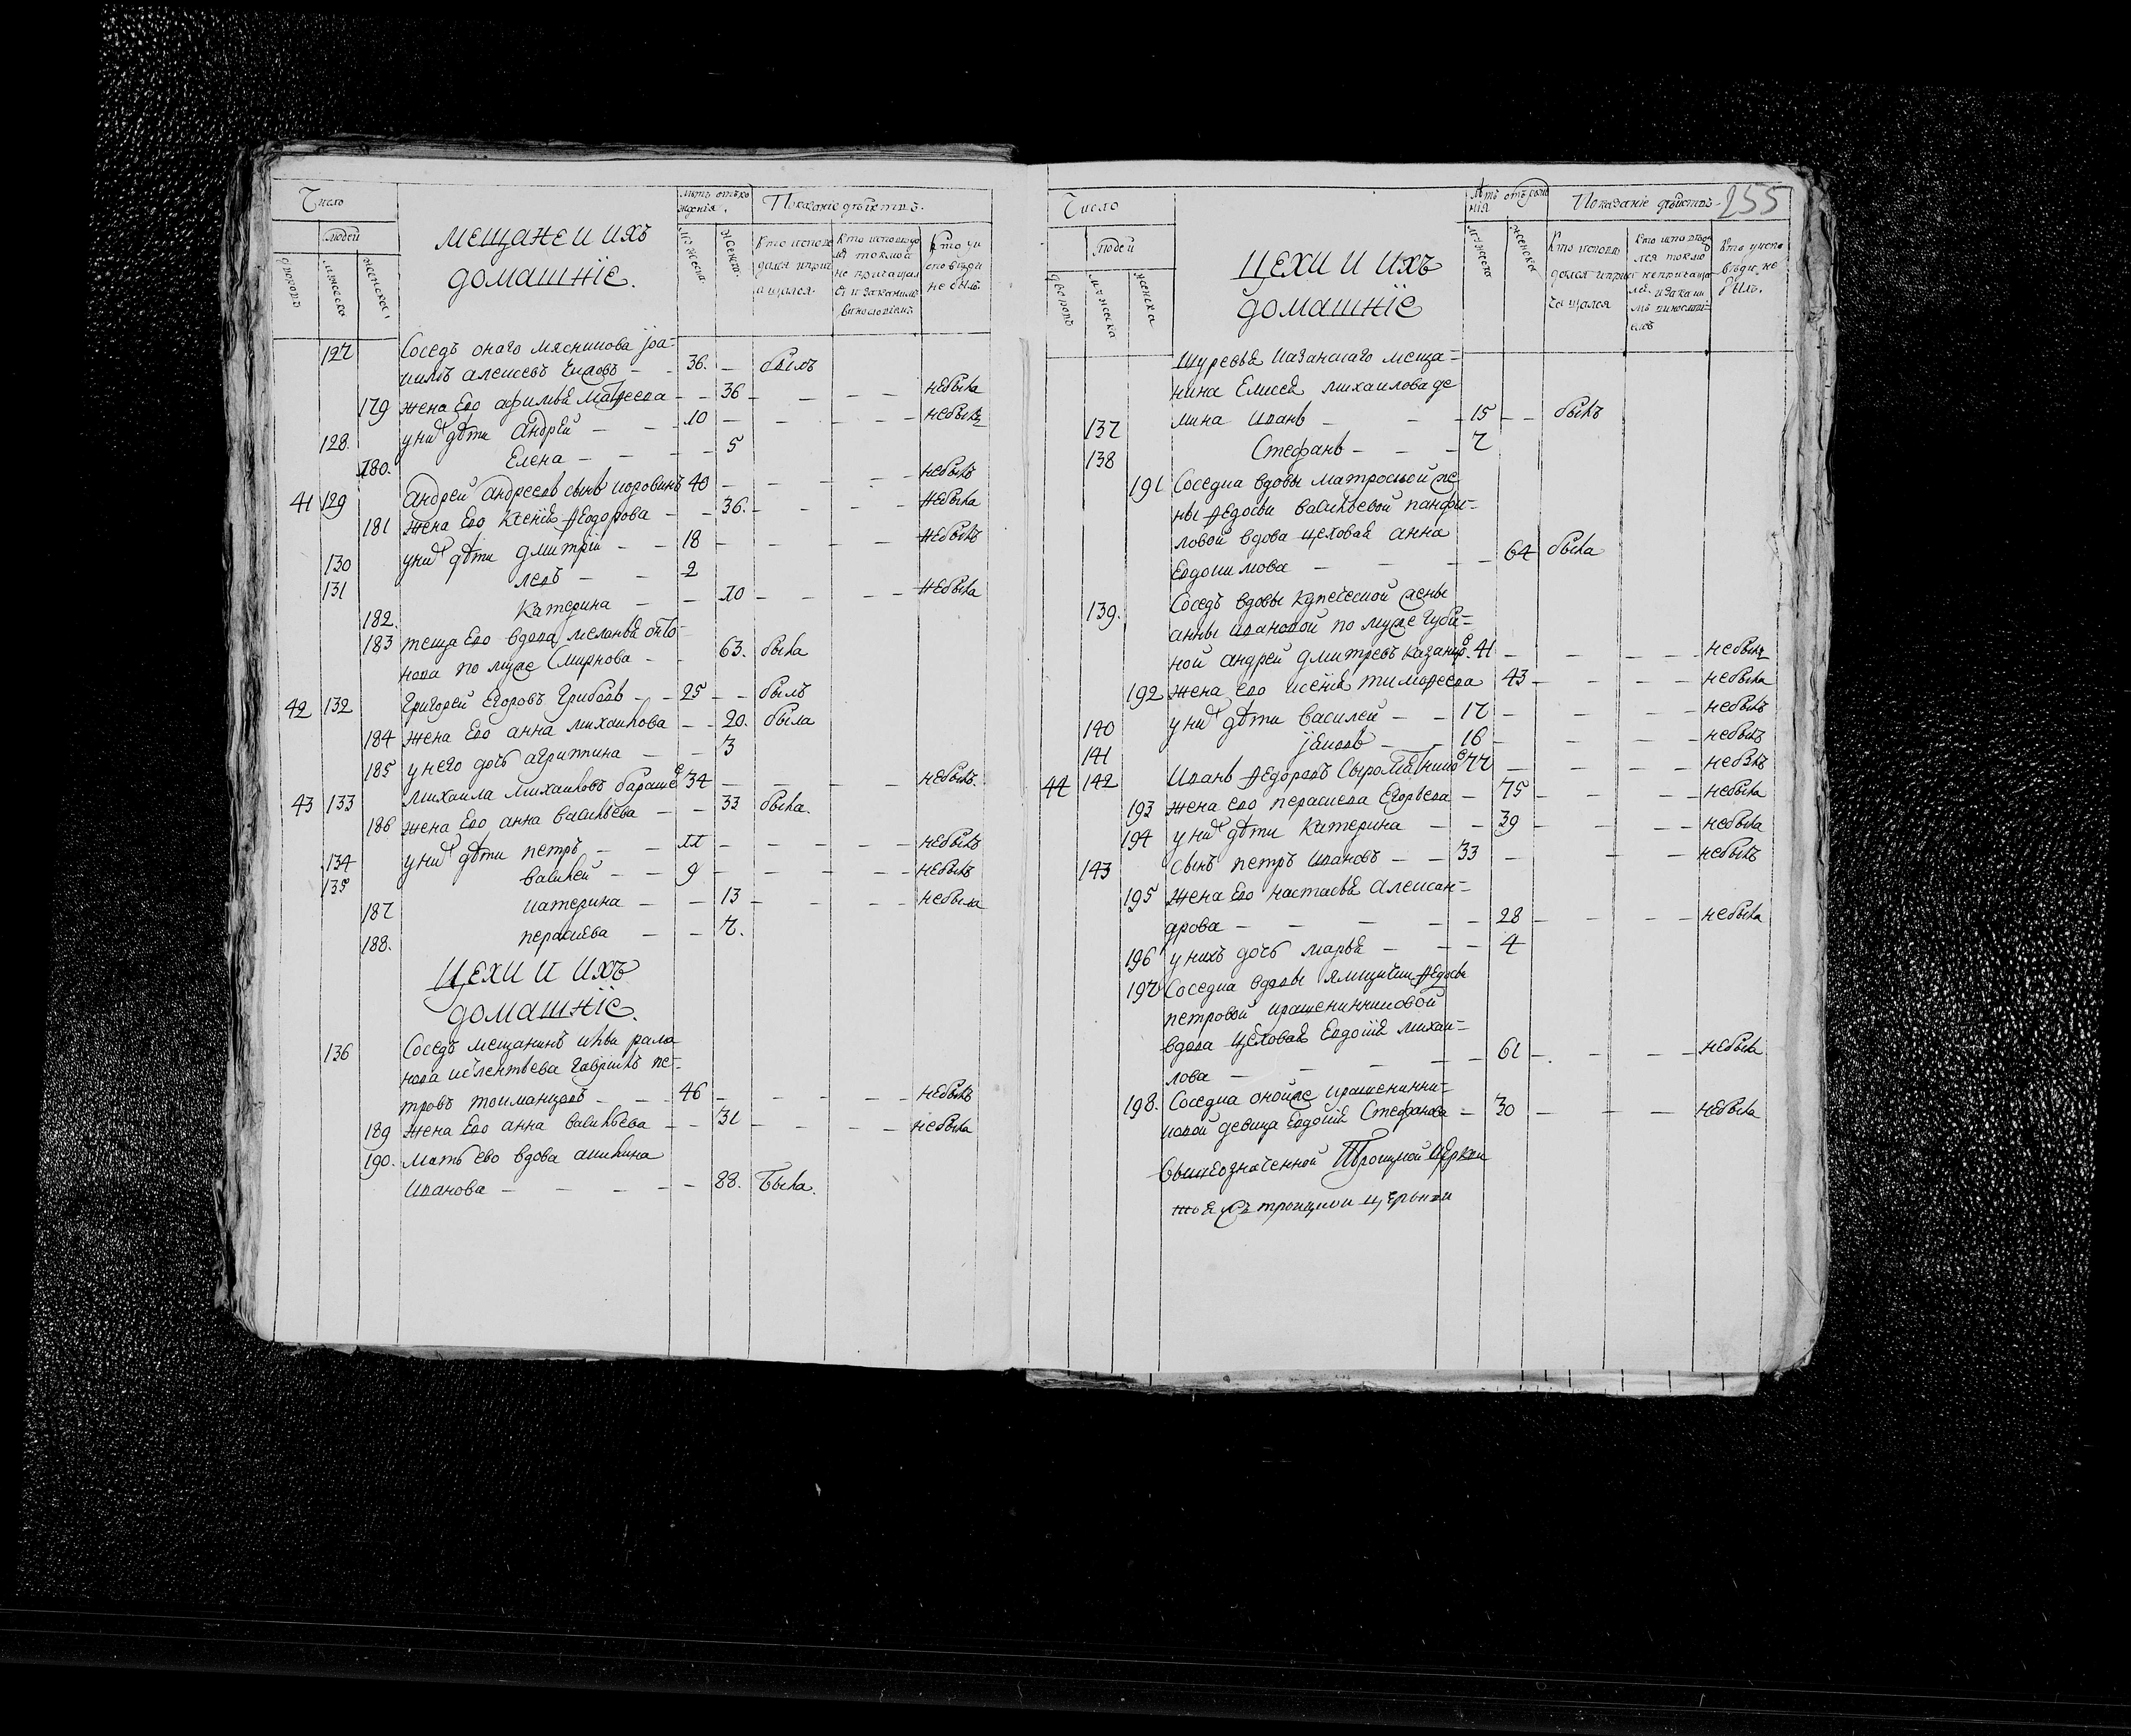 Число
людей
дворовъ
мужеска
женска
мещане и ихъ
домашнїе.
лѣтъ отъ рождения.
мужеска
женска
Показание действъ.
Кто исповедался и причащался.
Кто исповедался токмо а не причащался и за какимъ винословиемъ
Кто у исповеди не былъ
127 Соседъ онаго мясникова Іоа-
кимъ алексеевъ 36. - былъ
179 жена Ево афимья Матѳеева - - 36 - - - - небыла
128. у нихъ дѣти Андрей - - 10 - - - - небылъ
180. Елена - - - 5
41 129 Андрей Андреевъ сынъ коровинъ 40 - - - - небылъ
181 жена Ево Ксения Ѳеодорова - - 36. - - - - небыла
130 у нихъ дѣти дмитрїй - - 18 - - - - небылъ
131 левъ - - 2
182. Катерина - - 10 - - - - небыла
183 теща Ево вдова меланья анто-
нова по муже Смирнова - - 63. была
42 132 Григорей Егоровъ Грибовъ - - 25 - - былъ
184 жена Ево анна михаилова - - 20. была
185 у него дочь агрипина - - 3
43 133 Михаила Михаиловъ барашевъ 34 - - - - небылъ.
186 жена Ево анна васильева - - 33 была.
134 у нихъ дѣти петръ - - 11 - - - - небылъ
135 василей - - 9 - - - - небылъ
187 катерина - - 13 - - - - небыла
188. параскева - - 7.
Цехи и ихъ
домашнїе.
136 Соседъ мещанина
гаврила пе-
тровъ - - 46 - - - - небылъ
189 жена Ево анна васильева - - 31 - - - - небыла
190. мать ево вдова акилина
Иванова - - - - - 88. Была.
255
Число
людей
дворовъ
мужеска
женска
Цехи и ихъ
домашнїе
Лѣтъ отъ рождения
мужеска
женска
Показание действъ.
Кто исповедался и причащался
Кто исповедался токмо а не причащался и за какимъ винословиемъ
Кто у исповеди не былъ.
Шурья казанскаго меща-
нина Елисея михаилова де
137 мина Иванъ - - 15 - - былъ
138 Стефанъ - - - 7
191 Соседка вдовы матроской же
ны Ѳедосьи васильевой панфи-
ловой вдова цеховая анна
Евдокимова - - - - 64 была
139. Соседъ вдовы купеческой жены
анны ивановой по муже Губи-
ной андрей дмитревъ казанцовъ 41 - - - - небылъ
192 жена ево ксения тимоѳеева 43 - - - - небыла
140 у нихъ дѣти василей - - 17 - - - - небылъ
141 Іаковъ - - 16 - - - - небылъ
44 142 Иванъ Ѳедоровъ Сыромятниковъ 77 - - - - небылъ
193 жена ево параскева Егорьева - 75 - - - - небыла
194 у нихъ дѣти катерина - - 39 - - - - небыла
143 сынъ петръ Ивановъ - - 33 - - - небылъ
195 жена Ево настасья алексан-
дрова - - - - - 28 - - - - небыла
196 у нихъ дочь марья - - - 4
197 Соседка вдовы ямщички Ѳедосьи
петровой крашенинниковой
вдова цеховая Евдокия михаи-
лова - - - - - 61 - - - - небыла
198. Соседка оной же крашенинни-
ковой девица Евдокия Стефанова - 30 - - - небыла
Вышеозначенной Троицкой Церкви
троицкой церькви